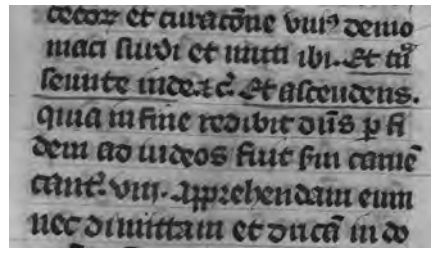 et curacõne uniꝰ demo
niaci surdi et muti ibi. Et
inde ⁊c̃. Et ascendens.
quia in fine redibit dñs p fi
dem ad iudeos suũ carnẽ
cant. viii. Apprehendam eum
nec dimittam et ducã in do